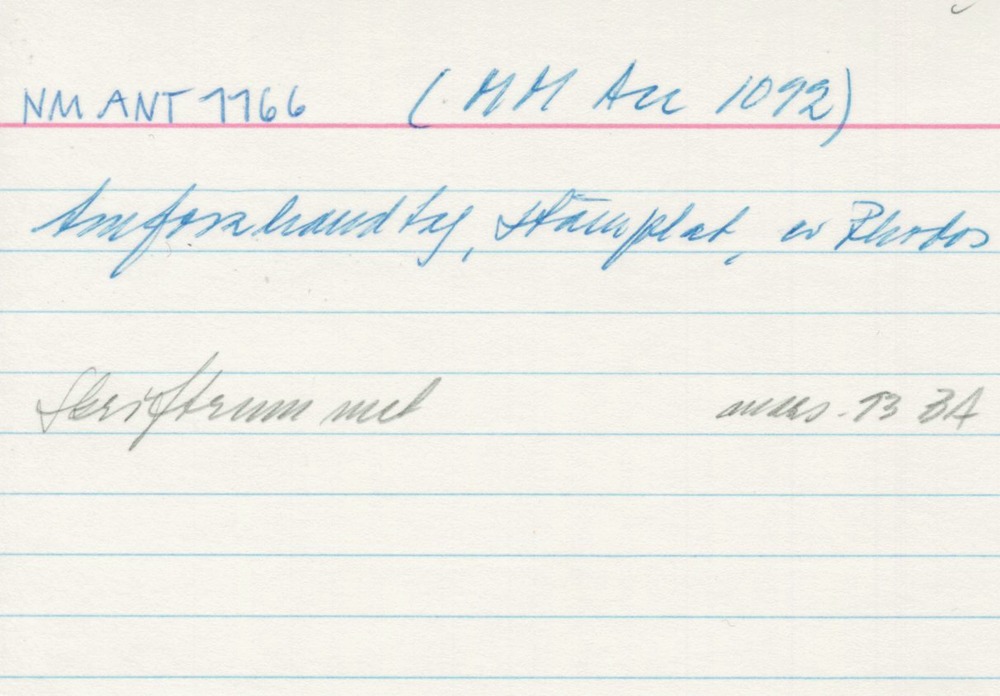 NM ANT 1166 (MM Acc 1092)
Amforahandtag, stämplat, ev Rhodos
Skriftrummet mars -73 BA